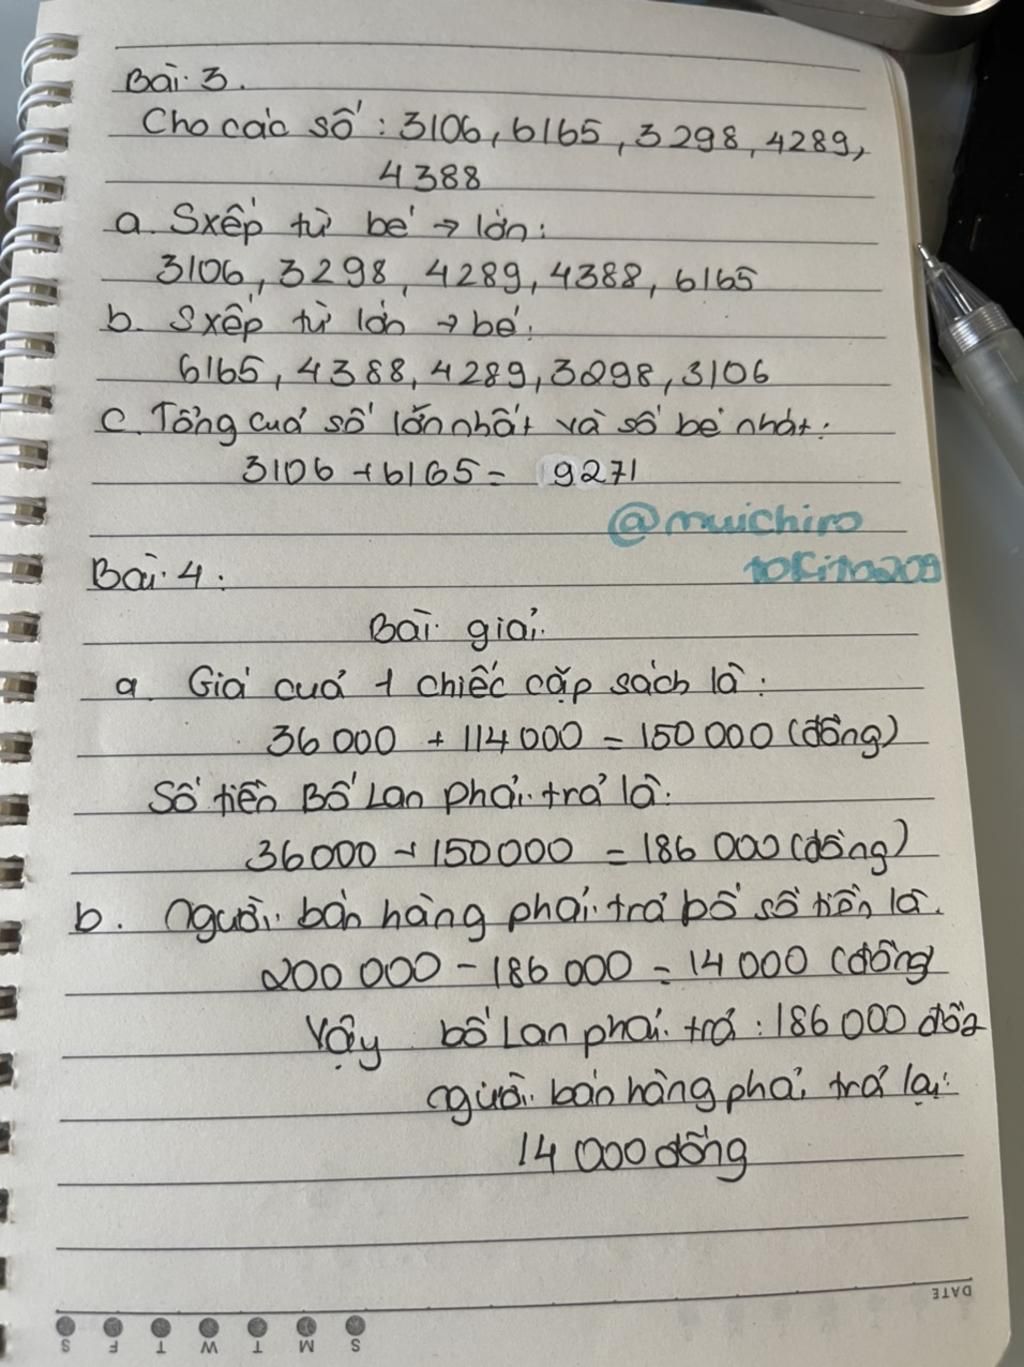 Bài 3.
Cho các số : 3106, 6165, 3298, 4289,
4388
a. Sxếp từ bé → lớn:
3106, 3298, 4289, 4388, 6165
b. Sxếp từ lớn → bé:
6165, 4388, 4289, 3298, 3106
c. Tổng cuả số lớn nhất và số bé nhất:
3106 + 6165 = 9271
@muichiro
tokito209
Bài 4:
Bài giải
a. Giá cuả 1 chiếc cặp sách là:
36 000 + 114 000 = 150 000 (đồng)
Số tiền Bố Lan phải trả là:
36000 + 150000 = 186 000 (đồng)
b. Người bán hàng phải trả bố số tiền là.
200 000 - 186 000 = 14 000 (đồng)
Vậy bố Lan phải trả : 186 000 đồng
người bán hàng phải trả lại:
14 000 đồng
DATE
S M T W T F S